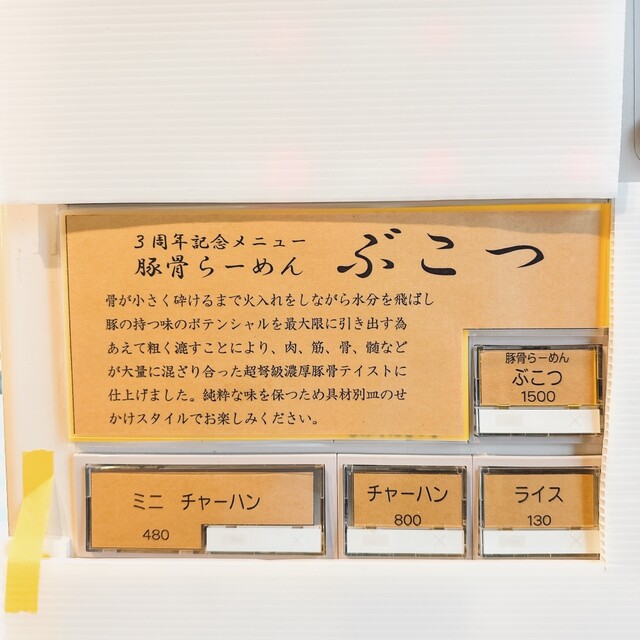 3周年記念メニュー
豚骨らーめん ぶこつ
骨が小さく砕けるまで火入れをしながら水分を飛ばし
豚の持つ味のポテンシャルを最大限に引き出す為
あえて粗く漉すことにより、肉、筋、骨、髄など
が大量に混ざり合った超弩級濃厚豚骨テイストに
仕上げました。純粋な味を保つため具材別皿のせ
かけスタイルでお楽しみください。
豚骨らーめん
ぶこつ
1500
ミニ チャーハン
480
チャーハン
800
ライス
130